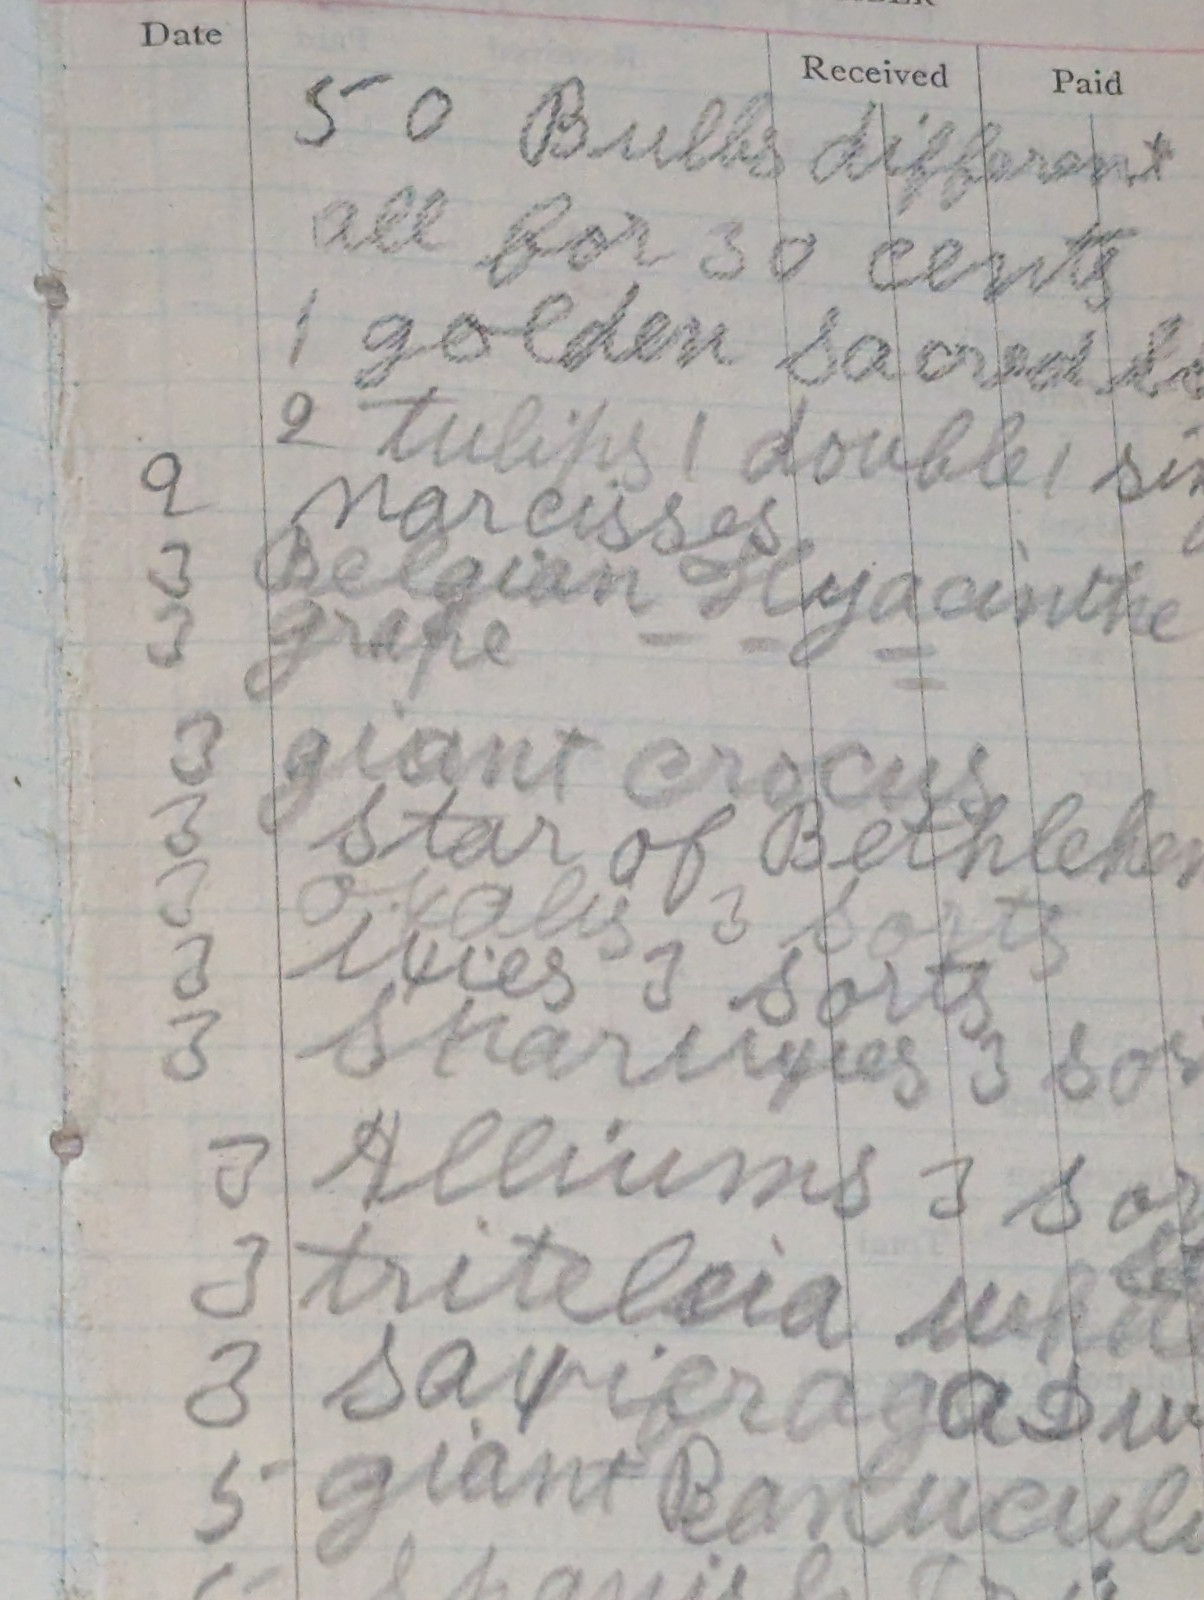 Date Received Paid
50 Bulbs different
all for 30 cents
1 golden sacred
2 tulips 1 double 1
2 Narcisses
3 Belgian Hyacinthe
3 grape
3 giant crocus
3 star of Bethlehem
3 oxalis 3 sorts
3 ixies 3 sorts
3 sparixies 3 sor
3 Alliums 3 sor
3 triteleia white
3 saxifragas w
5 giant Ranuculu
5 spanish Iris